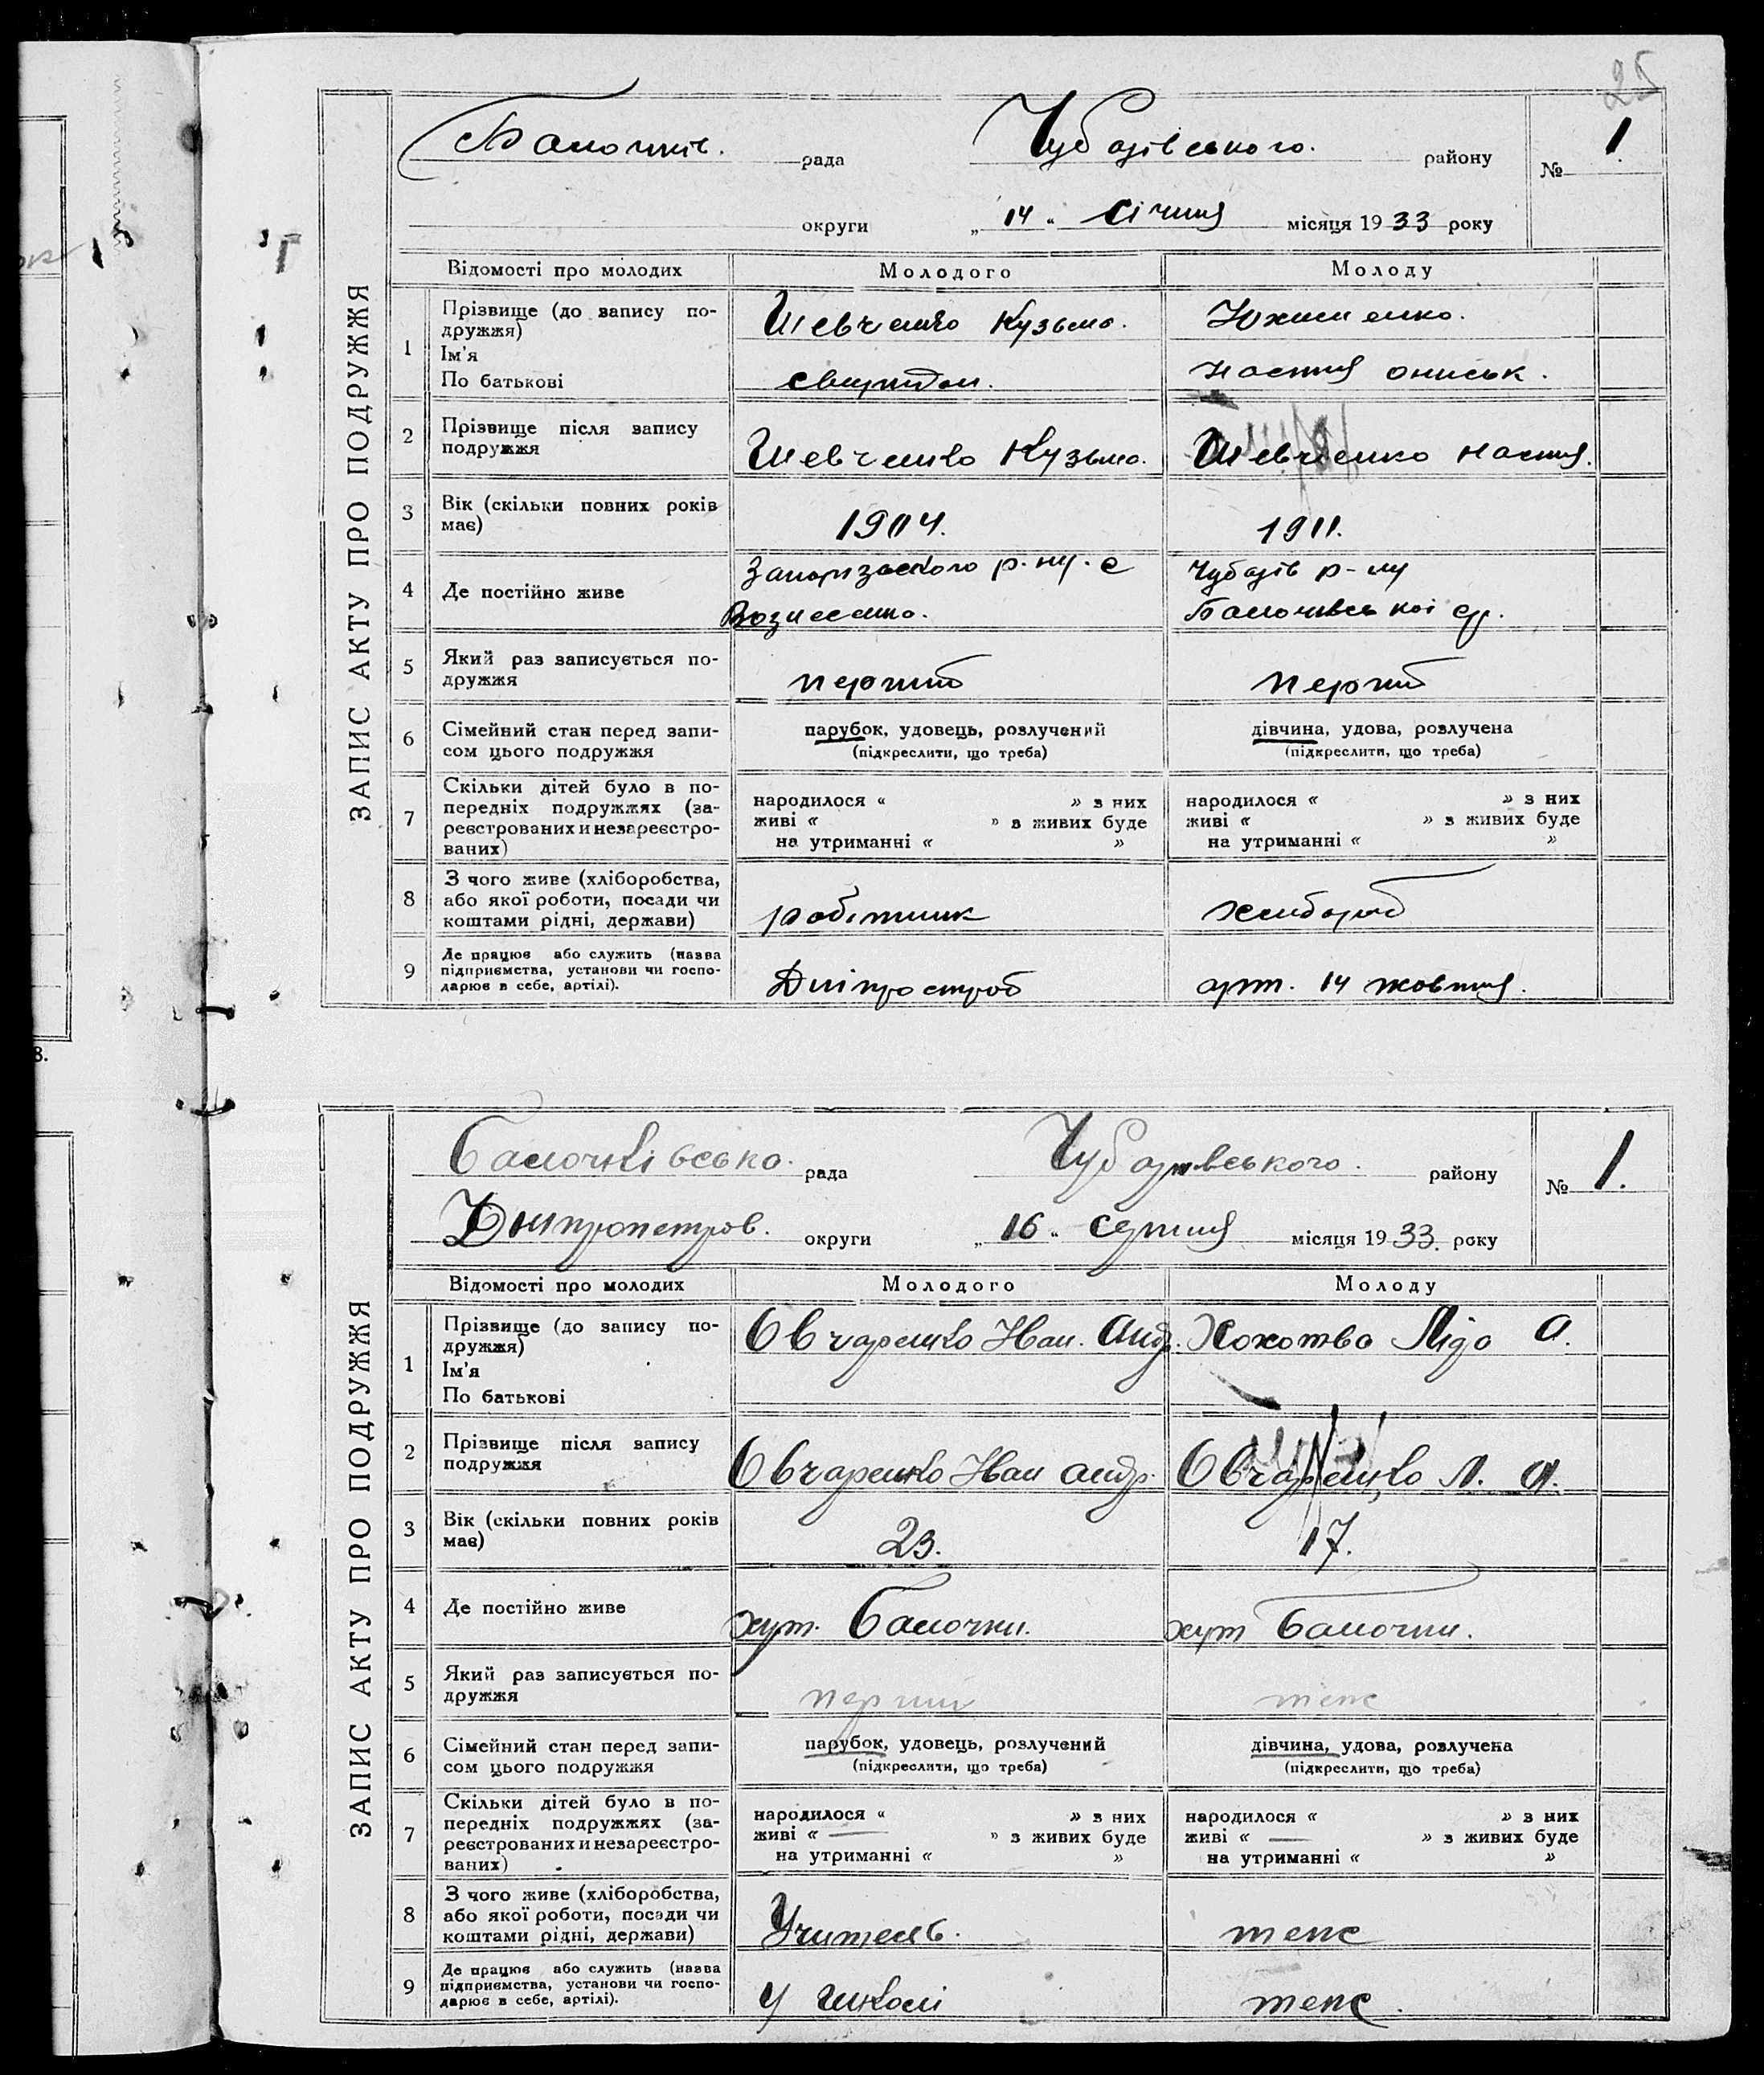 25
Балочків. рада Чубарівського. району № 1.
округи „14“ Січня місяця 1933 року
ЗАПИС АКТУ ПРО ПОДРУЖЖЯ
Відомості про молодих Молодого Молоду
1 Прізвище (до запису по-
дружжя)
Ім'я
По батькові
Шевченко Кузьма.
свиридон.
Юхименко.
Настя ониськ.
2 Прізвище після запису
подружжя
Шевченко Кузьма.
Шевченко Настя.
3 Вік (скільки повних років
має)
1904.
1911.
4 Де постійно живе
Запоризького р-ну. с
Вознесенко.
Чубарів р-ну
Балочквської ср.
5 Який раз записується по-
дружжя
перший
перший
6 Сімейний стан перед запи-
сом цього подружжя
парубок, удовець, розлучений
(підкреслити, що треба)
дівчина, удова, розлучена
(підкреслити, що треба)
7 Скільки дітей було в по-
передніх подружжях (за-
реєстрованих и незареєстро-
ваних)
народилося « » з них
живі « » з живих буде
на утриманні « »
народилося « » з них
живі « » з живих буде
на утриманні « »
8 З чого живе (хліборобства,
або якої роботи, посади чи
коштами рідні, держави)
робітник
хлибороб
9 Де працює або служить (назва
підприємства, установи чи госпо-
дарює в себе, артілі).
Дніпрострой
арт. 14 жовтня.
Балочківська. рада Чубарівського. району № 1.
Дніпропетров. округи „16“ Серпня місяця 1933. року
ЗАПИС АКТУ ПРО ПОДРУЖЖЯ
Відомості про молодих Молодого Молоду
1 Прізвище (до запису по-
дружжя)
Ім'я
По батькові
Овчаренко Іван. Андр.
Хохотва Ліда А.
2 Прізвище після запису
подружжя
Овчаренко Іван андр.
Овчаренко Л. А.
3 Вік (скільки повних років
має)
23.
17.
4 Де постійно живе
хут. Балочки.
хут Балочки.
5 Який раз записується по-
дружжя
перший
теже
6 Сімейний стан перед запи-
сом цього подружжя
парубок, удовець, розлучений
(підкреслити, що треба)
дівчина, удова, розлучена
(підкреслити, що треба)
7 Скільки дітей було в по-
передніх подружжях (за-
реєстрованих и незареєстро-
ваних)
народилося « » з них
живі « — » з живих буде
на утриманні « »
народилося « » з них
живі « — » з живих буде
на утриманні « »
8 З чого живе (хліборобства,
або якої роботи, посади чи
коштами рідні, держави)
Учитель.
теже
9 Де працює або служить (назва
підприємства, установи чи госпо-
дарює в себе, артілі).
У школі
теже.